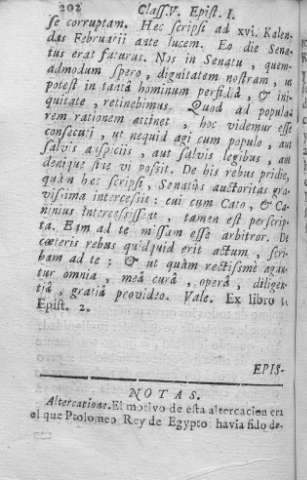 202 Class.V. Epist. I.
se corruptam. Hec scripsi ad xvi. Kalen-
das Februarii ante lucem. Eo die Sena-
tus erat futurus. Nos in Senatu, quem-
admodum spero, dignitatem nostram, ut
potest in tantâ hominum perfidiâ, & ini-
quitate, retinebimus. Quod ad popula-
rem rationem attinet, hoc videmur esse
consecuti, ut nequid agi cum populo, aut
salvis auspiciis, aut salvis legibus, aut
denique sine vi possit. De his rebus pridie,
quàm hec scripsi, Senatûs auctoritas gra-
vissima intercessit: cui cum Cato, & Ca-
ninius intercessissent, tamen est perscrip-
ta. Eam ad te missam esse arbitror. De
cæteris rebus quidquid erit actum, scri-
bam ad te; & ut quàm rectissimè agan-
tur omnia, meâ curâ, operâ, diligen-
tiâ, gratiâ providéo. Vale. Ex libro I.
Epist. 2.
EPIS-
NOTAS.
Altercatione. El motivo de esta altercacion en
el que Ptolomeo Rey de Egypto havia sido de-